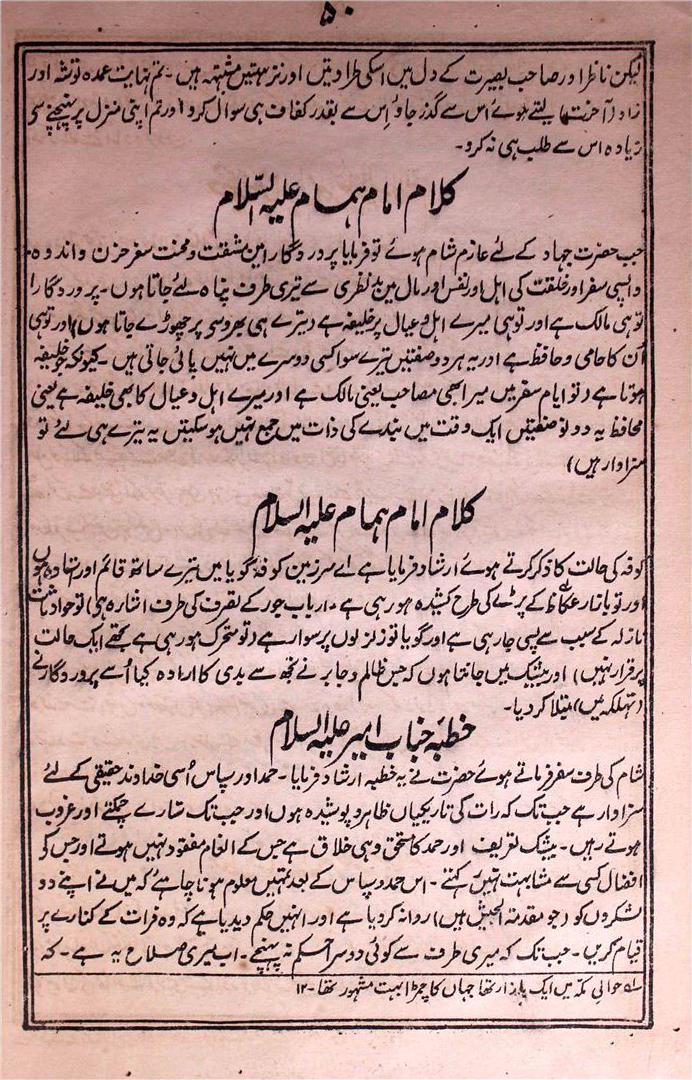 ۵۰
لیکن ناظر اور صاحب بصیرت کے دل میں اسکی طراوتیں اور نزہتیں مشتبہ ہیں۔ تم نہایت عمدہ توشہ اور
زاد آخرت لیتے ہوئے اس سے گذر جاؤ اس سے بقدر کفاف ہی سوال کرو اور تم اپنی منزل پر پہنچنے سی
زیادہ اس سے طلب ہی نہ کرو۔
کلام امام ہمام علیہ السّلام
جب حضرت جہاد کے لئے عازم شام ہوئے تو فرمایا پروردگارا میں مشقت و محنت سفر حزن و اندوہ
واپسی سفر اور خلقت کی اہل اور نفس اور مال میں بدنظری سے تیری طرف پناہ لئے جاتا ہوں۔ پروردگارا
تو ہی مالک ہے اور تو ہی میرے اہل و عیال پر خلیفہ ہے (تیرے ہی بھروسی پر چھوڑے جاتا ہوں) اور تو ہی
اُن کا حامی و حافظ ہے اور یہ ہر دو صفتیں تیرے سوا کسی دوسرے میں نہیں پائی جاتی ہیں۔ کیونکہ جو خلیفہ
ہوتا ہے (تو ایام سفر میں میرا بھی مصاحب یعنی مالک ہے اور میرے اہل و عیال کا بھی خلیفہ ہے یعنی
محافظ یہ دونو صفتیں ایک وقت میں بندے کی ذات میں جمع نہیں ہو سکتیں یہ تیرے ہی لئے تو
سزاوار ہیں)
کلام امام ہمام علیہ السلام
کوفہ کی حالت کا ذکر کرتے ہوئے ارشاد فرمایا ہے اے سرزمین کوفہ گویا میں تیرے ساتھ قائم اور استادہ ہوں
اور تو بازار عکاظ کے چمڑے کی طرح کشیدہ ہو رہی ہے۔ (ارباب جور کے تصرف کی طرف اشارہ ہی) تو حوادثات
نازلہ کے سبب سے پسی جا رہی ہے اور گویا تو زلزلوں پر سوار ہے (تو متحرک ہو رہی ہے تجھے ایک حالت
پر قرار نہیں) اور بیشک میں جانتا ہوں کہ جس ظالم و جابر نے تجھ سے بدی کا ارادہ کیا اُسے پروردگار نے
(تہلکہ میں) مبتلا کر دیا۔
خطبہ جناب امیر علیہ السلام
شام کی طرف سفر فرماتے ہوئے حضرت نے یہ خطبہ ارشاد فرمایا۔ حمد اور سپاس اُسی خداوند حقیقی کے لئے
سزاوار ہے جب تک کہ رات کی تاریکیاں ظاہر و پوشیدہ ہوں اور جب تک ستارے چمکتے اور غروب
ہوتے رہیں۔ بیشک تعریف اور حمد کا مستحق وہی خلاق ہے جس کے انعام مفقود نہیں ہوتے اور جس کو
افضال کسی سے مشابہت نہیں رکھتے۔ اس حمد و سپاس کے بعد تمہیں معلوم ہونا چاہئے کہ میں نے اپنے دو
لشکروں کو (جو مقدمۃ الجیش ہیں) روانہ کر دیا ہے اور انہیں حکم دیدیا ہے کہ وہ فرات کے کنارے پر
قیام کریں۔ جب تک کہ میری طرف سے کوئی دوسرا حکم نہ پہنچے۔ اب میری صلاح یہ ہے۔ کہ
حوالی مکہ میں ایک بازار تھا جہاں کا چمڑا بہت مشہور تھا۔ ۱۲